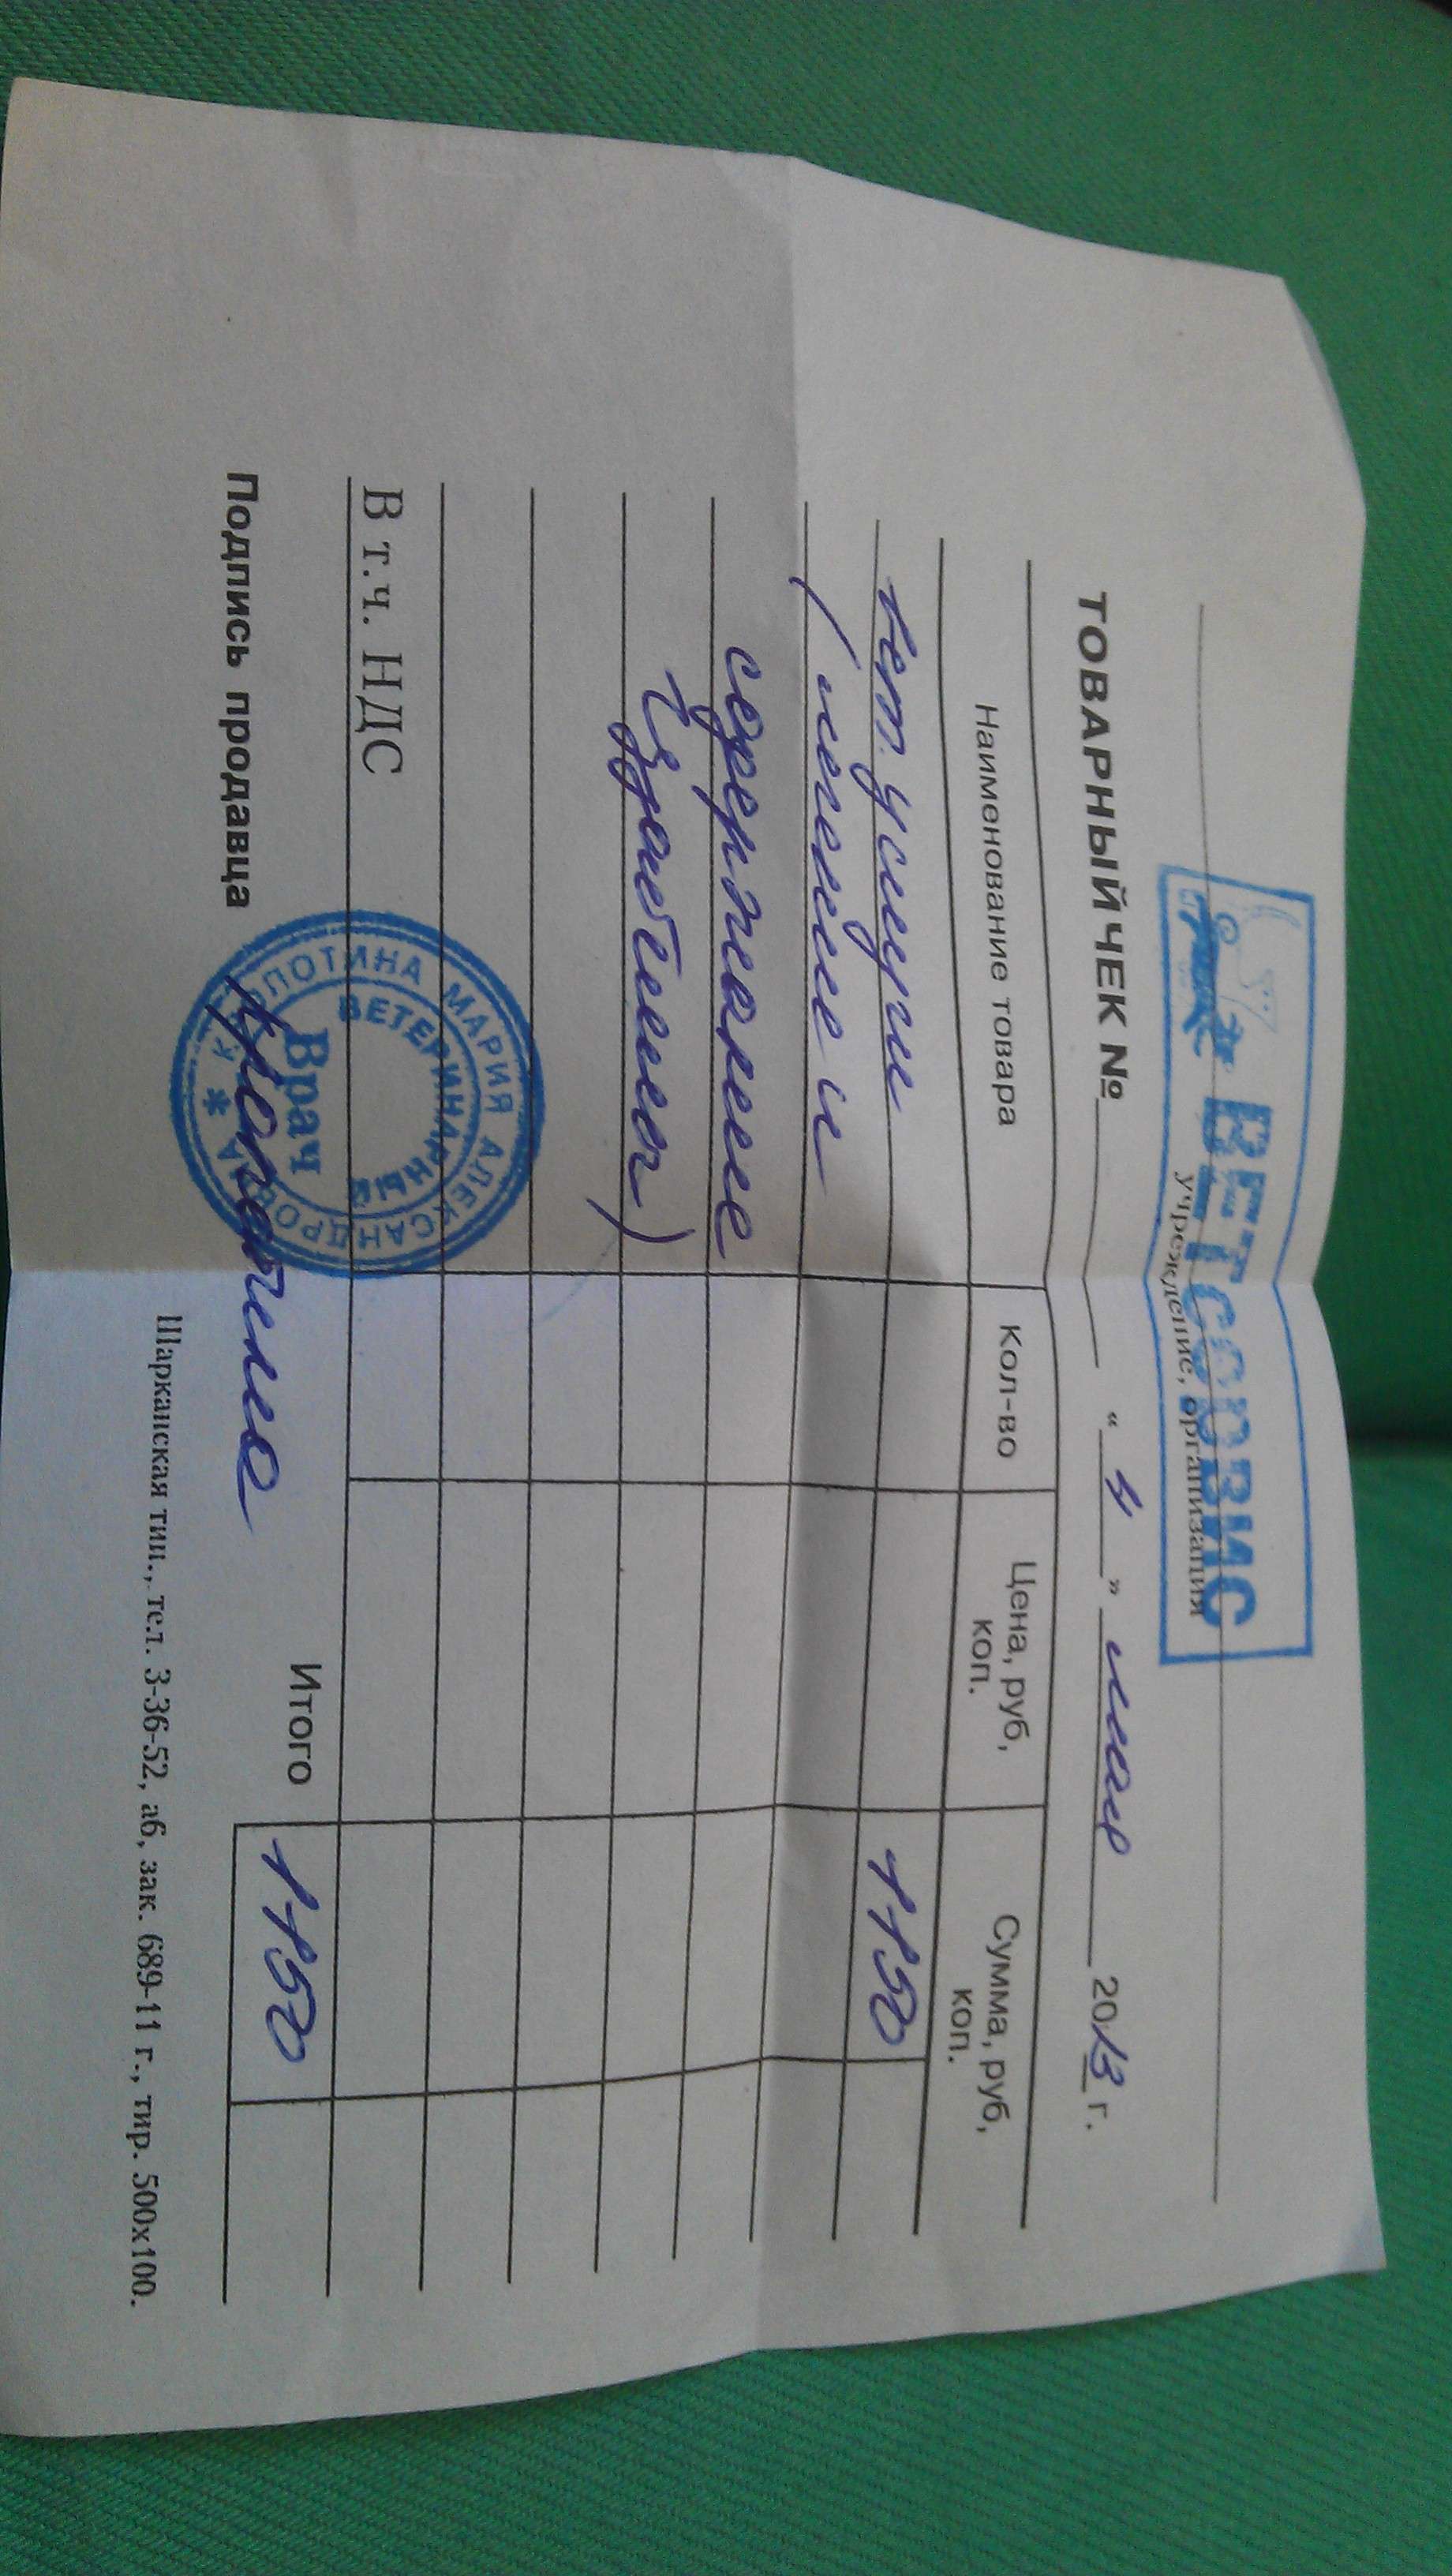 ВЕТСЕРВИС
учреждение, организация
ТОВАРНЫЙ ЧЕК № " 4 " мая 2013 г.
Наименование товара Кол-во Цена, руб, коп. Сумма, руб, коп.
вет. услуги 1150
(лечение и
содержание
)
В т.ч. НДС
Итого 1150
Подпись продавца
КОЛОТИНА МАРИЯ АЛЕКСАНДРОВНА
ВЕТЕРИНАРНЫЙ
Врач
Шарканская тип., тел. 3-36-52, аб, зак. 689-11 г., тир. 500х100.